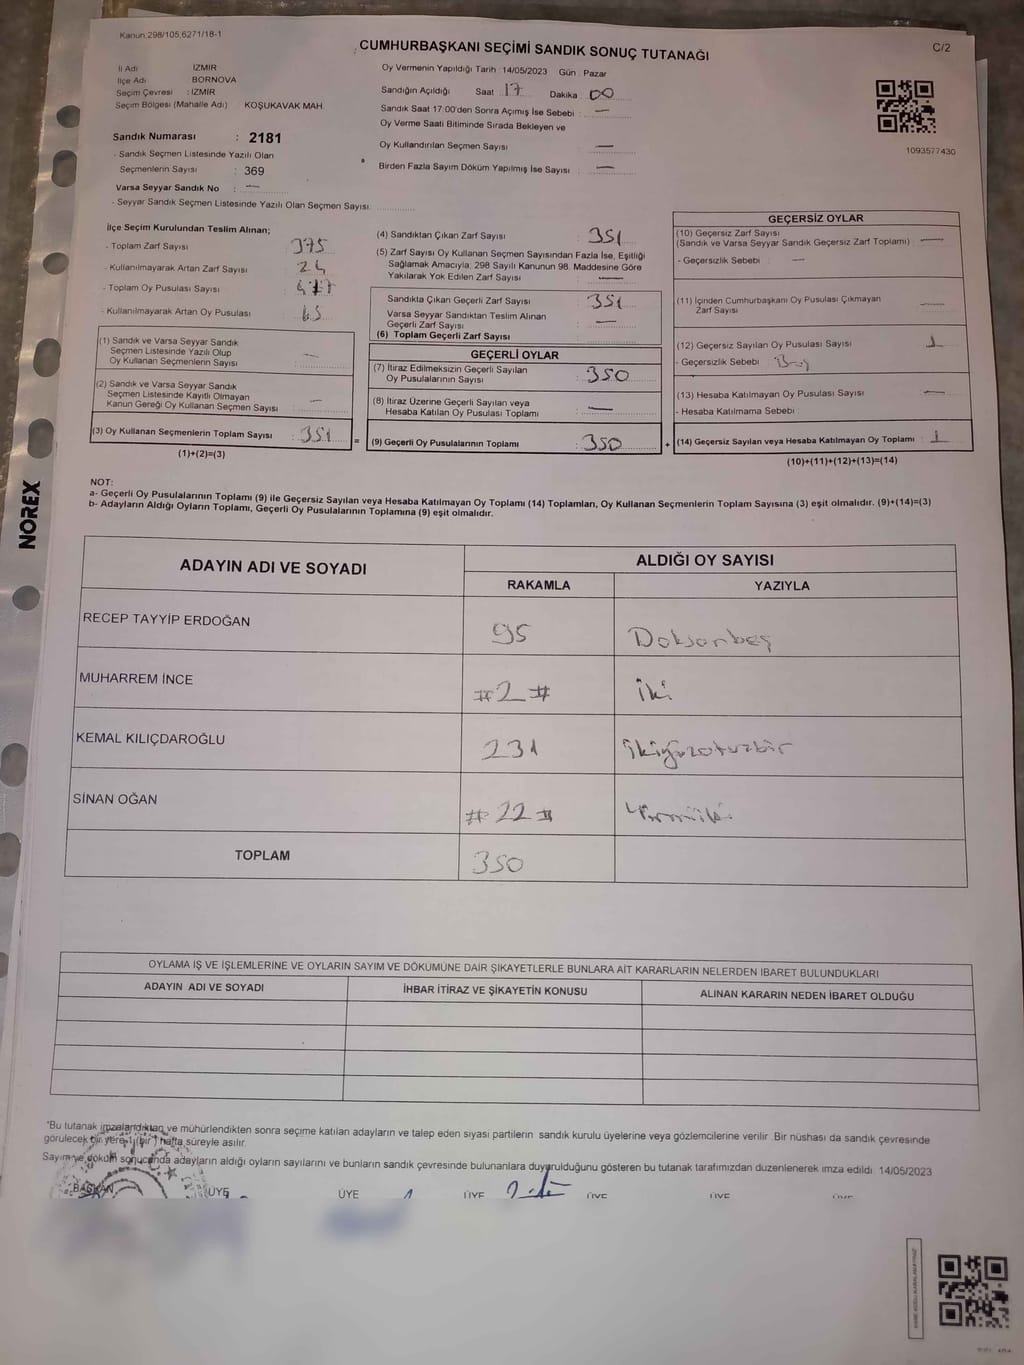 Kanun,298/105,6271/18-1
CUMHURBAŞKANI SEÇİMİ SANDIK SONUÇ TUTANAĞI
C/2
İl Adı İZMİR
İlçe Adı BORNOVA
Seçim Çevresi : İZMİR
Seçim Bölgesi (Mahalle Adı) KOŞUKAVAK MAH.
Sandık Numarası : 2181
- Sandık Seçmen Listesinde Yazılı Olan
Seçmenlerin Sayısı : 369
Varsa Seyyar Sandık No : —
- Seyyar Sandık Seçmen Listesinde Yazılı Olan Seçmen Sayısı:
Oy Vermenin Yapıldığı Tarih :14/05/2023 Gün : Pazar
Sandığın Açıldığı Saat 17 Dakika 00
Sandık Saat 17:00'den Sonra Açımış İse Sebebi : —
Oy Verme Saati Bitiminde Sırada Bekleyen ve
Oy Kullandırılan Seçmen Sayısı —
Birden Fazla Sayım Döküm Yapılmış İse Sayısı : —
1093577430
İlçe Seçim Kurulundan Teslim Alınan;
- Toplam Zarf Sayısı 375
- Kullanılmayarak Artan Zarf Sayısı 24
- Toplam Oy Pusulası Sayısı
- Kullanılmayarak Artan Oy Pusulası
(1) Sandık ve Varsa Seyyar Sandık
Seçmen Listesinde Yazılı Olup
Oy Kullanan Seçmenlerin Sayısı : —
(2) Sandık ve Varsa Seyyar Sandık
Seçmen Listesinde Kayıtlı Olmayan
Kanun Gereği Oy Kullanan Seçmen Sayısı : —
(3) Oy Kullanan Seçmenlerin Toplam Sayısı : 351
(1)+(2)=(3)
=
(4) Sandıktan Çıkan Zarf Sayısı : 351
(5) Zarf Sayısı Oy Kullanan Seçmen Sayısından Fazla İse, Eşitliği
Sağlamak Amacıyla; 298 Sayılı Kanunun 98. Maddesine Göre
Yakılarak Yok Edilen Zarf Sayısı : —
Sandıkta Çıkan Geçerli Zarf Sayısı : 351
Varsa Seyyar Sandıktan Teslim Alınan
Geçerli Zarf Sayısı : —
(6) Toplam Geçerli Zarf Sayısı
GEÇERLİ OYLAR
(7) İtiraz Edilmeksizin Geçerli Sayılan
Oy Pusulalarının Sayısı : 350
(8) İtiraz Üzerine Geçerli Sayılan veya
Hesaba Katılan Oy Pusulası Toplamı : —
(9) Geçerli Oy Pusulalarının Toplamı : 350
+
GEÇERSİZ OYLAR
(10) Geçersiz Zarf Sayısı
(Sandık ve Varsa Seyyar Sandık Geçersiz Zarf Toplamı) : —
- Geçersizlik Sebebi : —
(11) İçinden Cumhurbaşkanı Oy Pusulası Çıkmayan
Zarf Sayısı —
(12) Geçersiz Sayılan Oy Pusulası Sayısı : 1
- Geçersizlik Sebebi :
(13) Hesaba Katılmayan Oy Pusulası Sayısı : —
- Hesaba Katılmama Sebebi
(14) Geçersiz Sayılan veya Hesaba Katılmayan Oy Toplamı : 1
(10)+(11)+(12)+(13)=(14)
NOT:
a- Geçerli Oy Pusulalarının Toplamı (9) ile Geçersiz Sayılan veya Hesaba Katılmayan Oy Toplamı (14) Toplamları, Oy Kullanan Seçmenlerin Toplam Sayısına (3) eşit olmalıdır. (9)+(14)=(3)
b- Adayların Aldığı Oyların Toplamı, Geçerli Oy Pusulalarının Toplamına (9) eşit olmalıdır.
NOREX
ADAYIN ADI VE SOYADI ALDIĞI OY SAYISI
RAKAMLA YAZIYLA
RECEP TAYYİP ERDOĞAN 95 Doksanbeş
MUHARREM İNCE #2# iki
KEMAL KILIÇDAROĞLU 231 ikiyüzotuzbir
SİNAN OĞAN #22# Yirmiiki
TOPLAM 350
OYLAMA İŞ VE İŞLEMLERİNE VE OYLARIN SAYIM VE DÖKÜMÜNE DAİR ŞİKAYETLERLE BUNLARA AİT KARARLARIN NELERDEN İBARET BULUNDUKLARI
ADAYIN ADI VE SOYADI İHBAR İTİRAZ VE ŞİKAYETİN KONUSU ALINAN KARARIN NEDEN İBARET OLDUĞU
"Bu tutanak imzalandıktan ve mühürlendikten sonra seçime katılan adayların ve talep eden siyasi partilerin sandık kurulu üyelerine veya gözlemcilerine verilir. Bir nüshası da sandık çevresinde
görülecek bir yere 1 (bir) hafta süreyle asılır.
Sayım ve döküm sonucunda adayların aldığı oyların sayılarını ve bunların sandık çevresinde bulunanlara duyurulduğunu gösteren bu tutanak tarafımızdan düzenlenerek imza edildi. 14/05/2023
BAŞKAN ÜYE ÜYE ÜYE ÜYE ÜYE